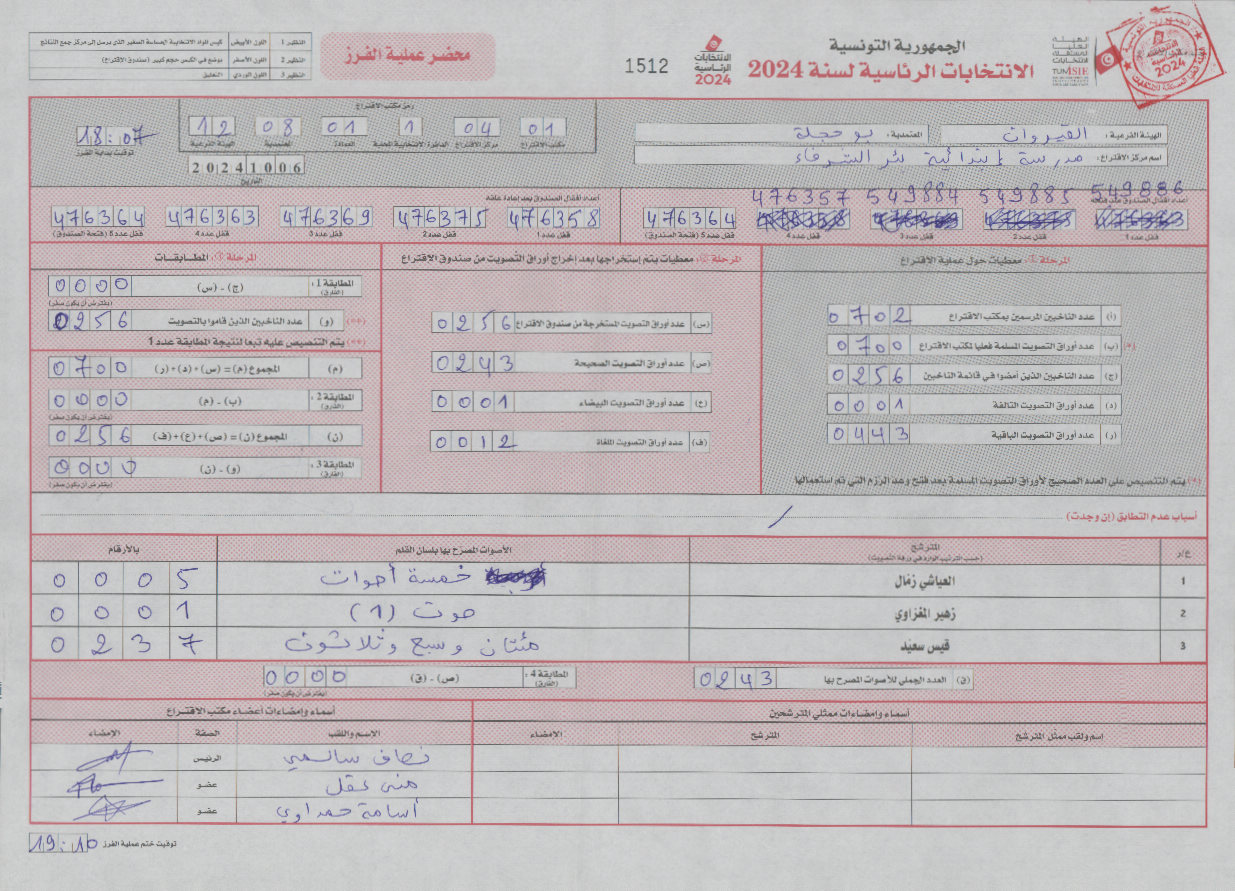 الجمهورية التونسية
الانتخابات الرئاسية لسنة 2024
الهيئة العليا المستقلة للانتخابات
TUNISIE
الانتخابات الرئاسية 2024
1512
محضر عملية الفرز
النظير 1 اللون الأبيض كيس المواد الانتخابية الحساسة الصغير الذي يرسل إلى مركز جمع النتائج
النظير 2 اللون الأصفر يوضع في الكيس حجم كبير (صندوق الإقتراع)
النظير 3 اللون الوردي التعليق
الهيئة الفرعية : القيروان المعتمدية : بوحجلة
اسم مركز الإقتراع : مدرسة إبتدائية بئر الشرفاء
رمز مكتب الاقتراع
01 04 1 01 08 12
مكتب الاقتراع مركز الاقتراع الدائرة الانتخابية المحلية العمادة المعتمدية الهيئة الفرعية
20241006
التاريخ
18:07
توقيت بداية الفرز
549886 549885 549884 476357
أعداد أقفال الصندوق عند فتحه
476364
قفل عدد 1 قفل عدد 2 قفل عدد 3 قفل عدد 4 قفل عدد 5 (فتحة الصندوق)
أعداد أقفال الصندوق بعد إعادة غلقه
476358 476375 476369 476363 476364
قفل عدد 1 قفل عدد 2 قفل عدد 3 قفل عدد 4 قفل عدد 5 (فتحة الصندوق)
المرحلة ①: معطيات حول عملية الاقتراع
(أ) عدد الناخبين المرسمين بمكتب الاقتراع 0702
(*) (ب) عدد أوراق التصويت المسلمة فعليا لمكتب الاقتراع 0700
(ج) عدد الناخبين الذين أمضوا في قائمة الناخبين 0256
(د) عدد أوراق التصويت التالفة 0001
(ر) عدد أوراق التصويت الباقية 0443
(*) يتم التنصيص على العدد الصحيح لأوراق التصويت المسلمة بعد فتح وعد الرزم التي تم استعمالها
المرحلة ②: معطيات يتم إستخراجها بعد إخراج أوراق التصويت من صندوق الاقتراع
(س) عدد أوراق التصويت المستخرجة من صندوق الاقتراع 0256
(ص) عدد أوراق التصويت الصحيحة 0243
(ع) عدد أوراق التصويت البيضاء 0001
(ف) عدد أوراق التصويت الملغاة 0012
المرحلة ③: المطابقات
المطابقة 1 : (الفارق) (ج) - (س) 0000
(يفترض أن يكون صفر)
(**) (و) عدد الناخبين الذين قاموا بالتصويت 0256
(**) يتم التنصيص عليه تبعا لنتيجة المطابقة عدد 1
(م) المجموع (م) = (س) + (د) + (ر) 0700
المطابقة 2 : (الفارق) (ب) - (م) 0000
(يفترض أن يكون صفر)
(ن) المجموع (ن) = (ص) + (ع) + (ف) 0256
المطابقة 3 : (الفارق) (و) - (ن) 0000
(يفترض أن يكون صفر)
أسباب عدم التطابق (إن وجدت) /
ع/ر المترشح (حسب الترتيب الوارد في ورقة التصويت) الأصوات المصرح بها بلسان القلم بالأرقام
1 العياشي زمّال خمسة أصوات 0005
2 زهير المغزاوي صوت (1) 0001
3 قيس سعيّد مئتان وسبع وثلاثون 0237
(ق) العدد الجملي للأصوات المصرح بها 0243
المطابقة 4 : (الفارق) (ص) - (ق) 0000
(يفترض أن يكون صفر)
أسماء وإمضاءات ممثلي المترشحين
اسم ولقب ممثل المترشح المترشح الإمضاء
أسماء وإمضاءات أعضاء مكتب الاقتراع
الاسم واللقب الصفة الإمضاء
سالمي الرئيس
منى عقل عضو
أسامة حمداوي عضو
توقيت ختم عملية الفرز 19:10